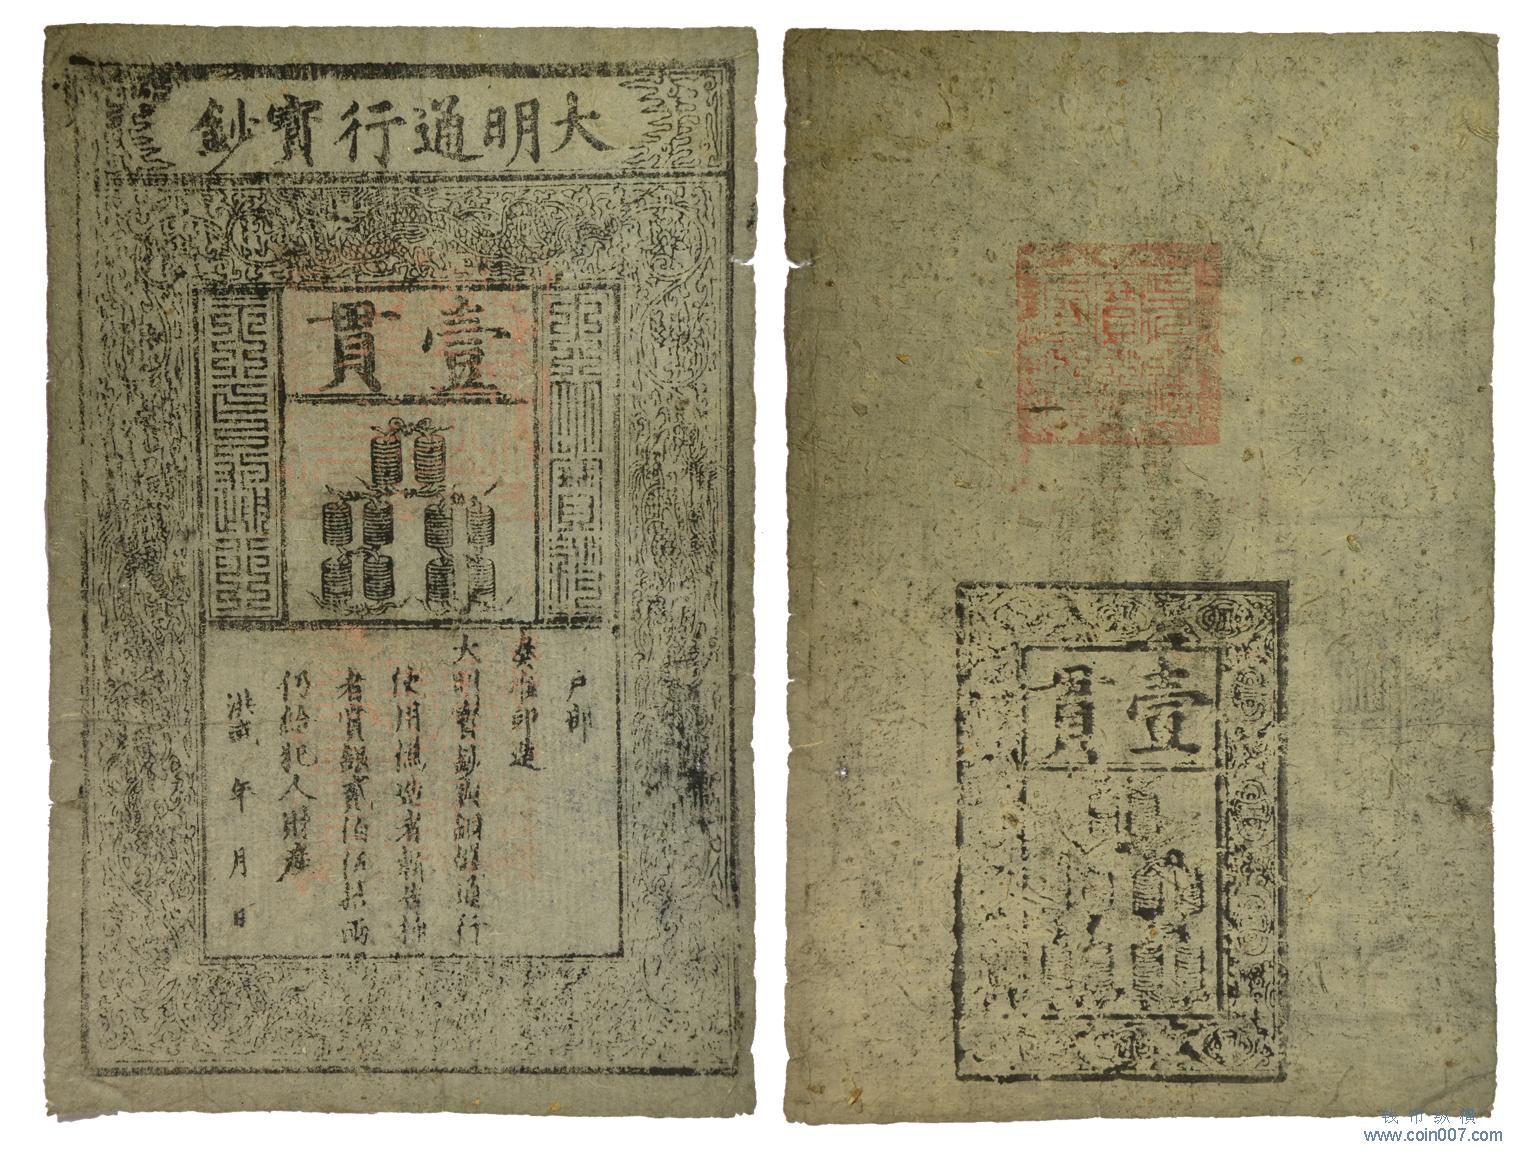 大明通行寶鈔
壹貫
戶部
奏准印造
大明寶鈔與銅錢通行
使用偽造者斬告捕
者賞銀貳伯伍拾兩
仍給犯人財產
洪武 年 月 日
壹貫
钱币纵横
www.coin007.com